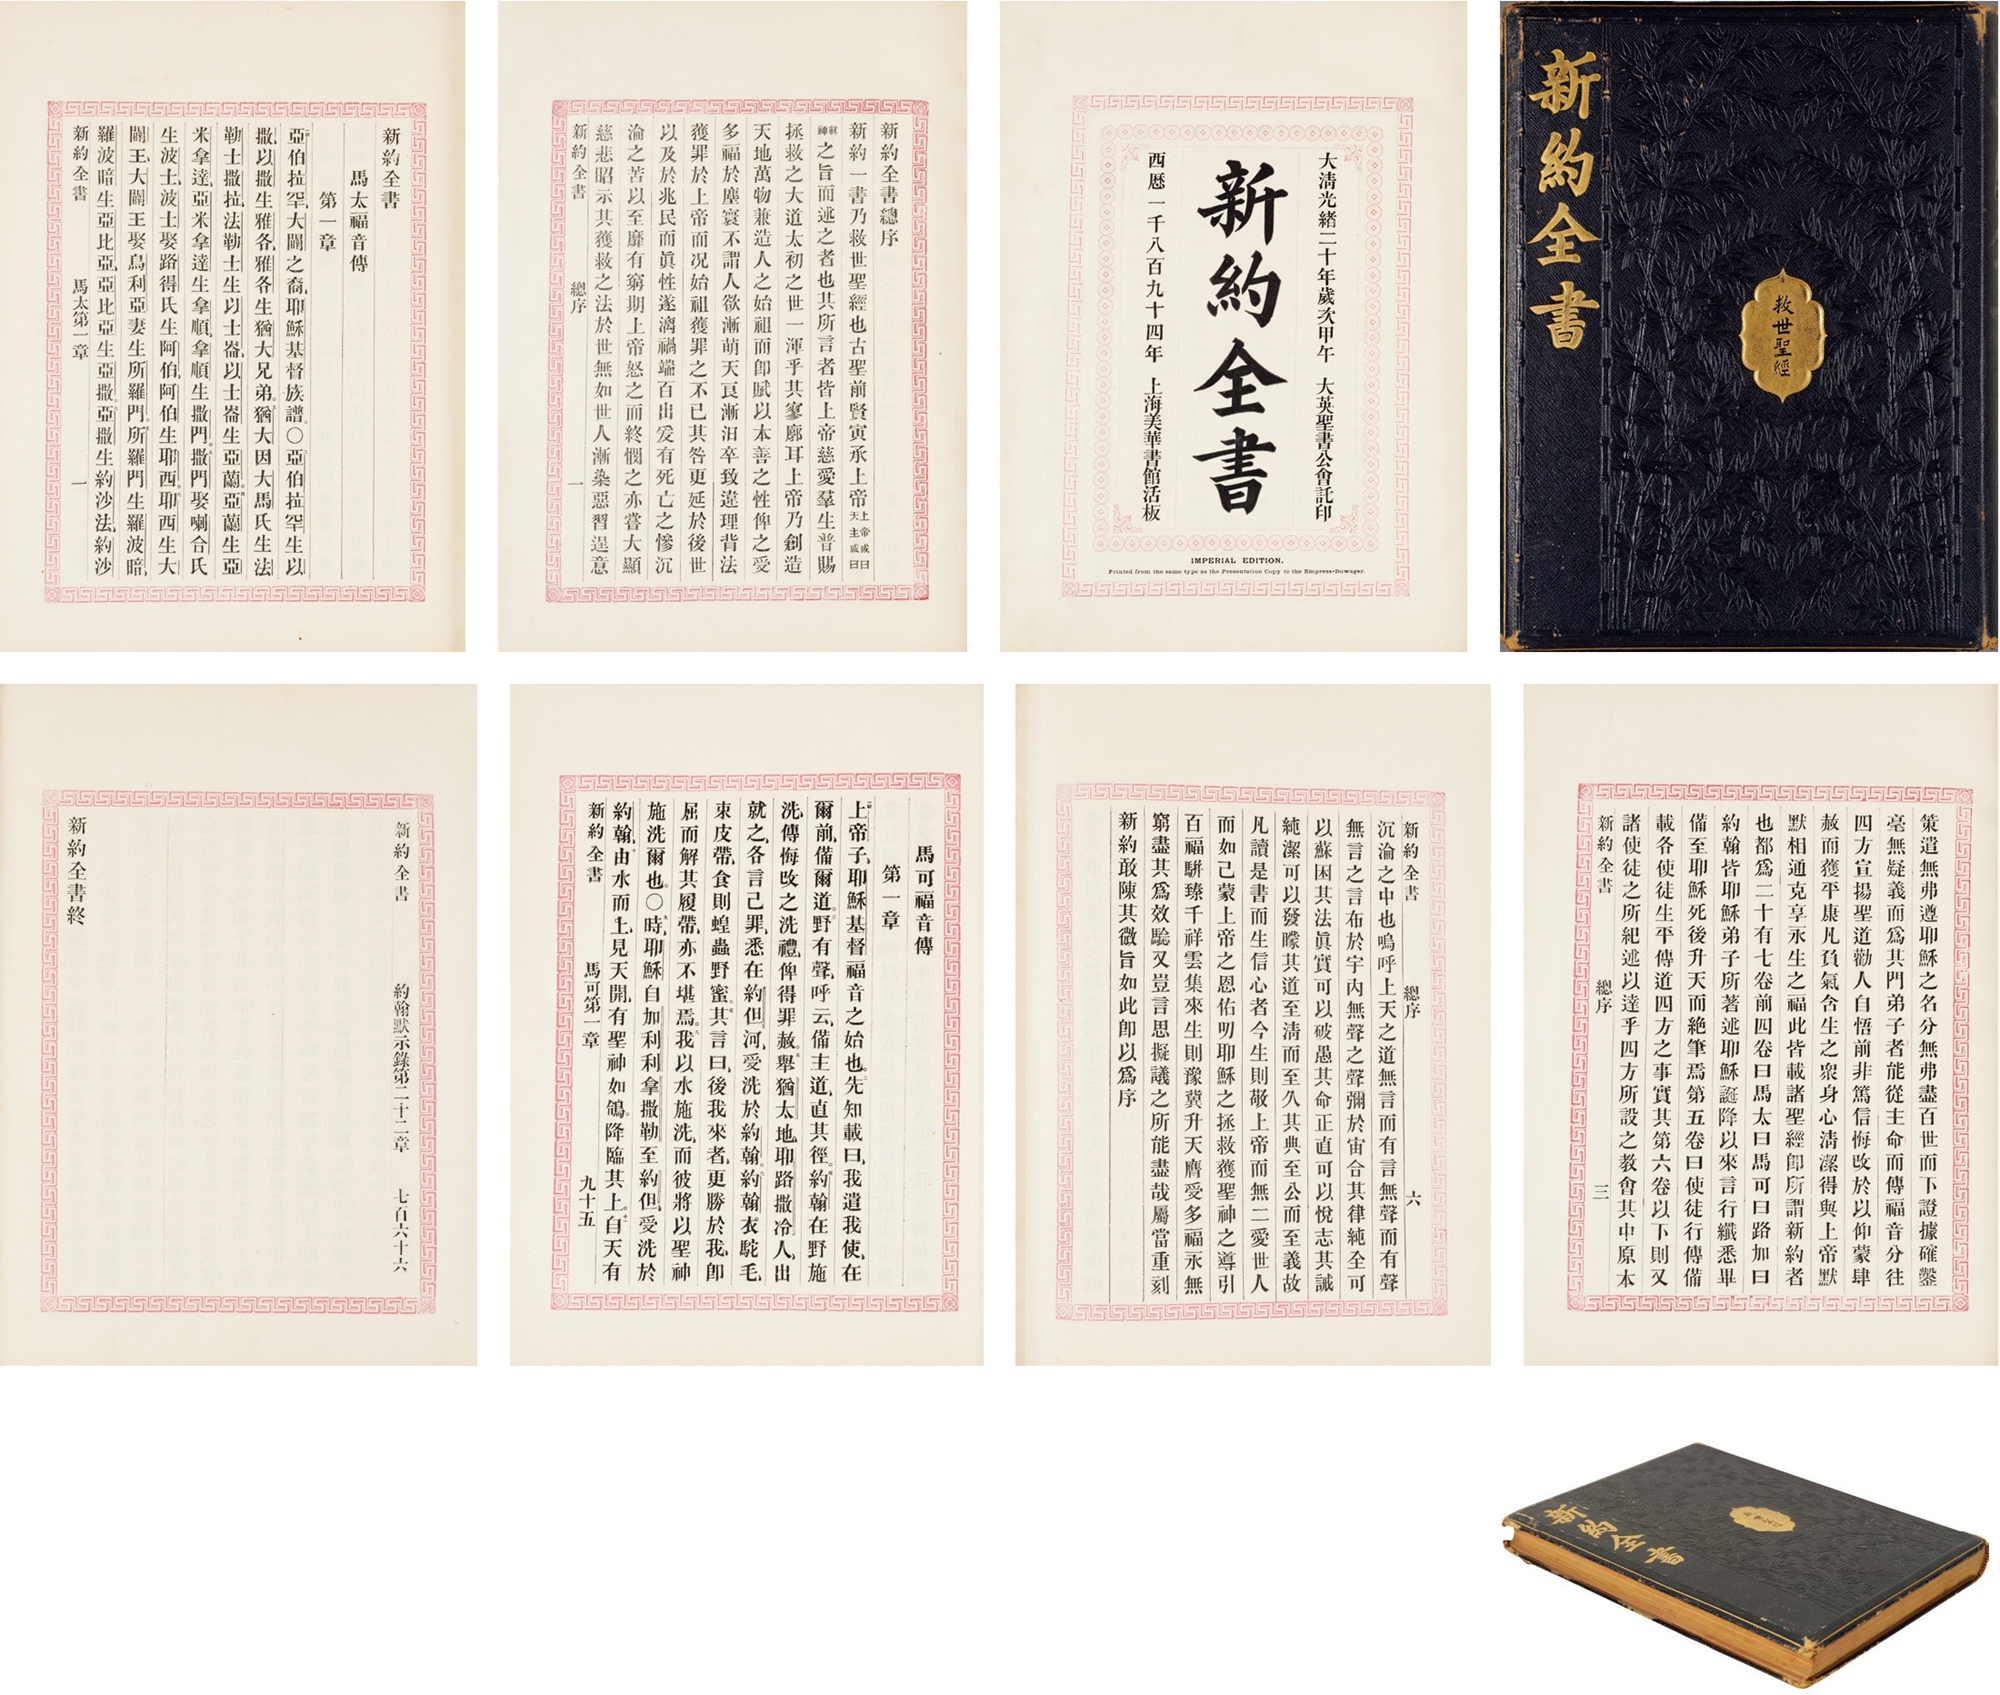 新約全書
救世聖經
大清光緒二十年歲次甲午　大英聖書公會託印
新約全書
西曆一千八百九十四年　上海美華書館活板
IMPERIAL EDITION.
Printed from the same type as the Presentation Copy to the Empress-Dowager.
新約全書總序
新約一書乃救世聖經也古聖前賢寅承上帝上帝或曰天主或曰
眞神之旨而述之者也其所言者皆上帝慈愛羣生普賜
拯救之大道太初之世一渾乎其寥廓耳上帝乃創造
天地萬物兼造人之始祖而卽賦以本善之性俾之受
多福於塵寰不謂人欲漸萌天良漸汨卒致違理背法
獲罪於上帝而况始祖獲罪之不已其咎更延於後世
以及於兆民而眞性遂漓禍端百出爰有死亡之慘沉
淪之苦以至靡有窮期上帝怒之而終憫之亦嘗大顯
慈悲昭示其獲救之法於世無如世人漸染惡習逞意
新約全書　總序　一
新約全書
馬太福音傳
第一章
亞伯拉罕大闢之裔耶穌基督族譜〇亞伯拉罕生以
撒以撒生雅各雅各生猶大兄弟猶大因大馬氏生法
勒士撒拉法勒士生以士崙以士崙生亞蘭亞蘭生亞
米拿達亞米拿達生拿順拿順生撒門撒門娶喇合氏
生波士波士娶路得氏生阿伯阿伯生耶西耶西生大
闢王大闢王娶烏利亞妻生所羅門所羅門生羅波暗
羅波暗生亞比亞亞比亞生亞撒亞撒生約沙法約沙
新約全書　馬太第一章　一
策遣無弗遵耶穌之名分無弗盡百世而下證據確鑿
毫無疑義而爲其門弟子者能從主命而傳福音分往
四方宣揚聖道勸人自悟前非篤信悔改於以仰蒙肆
赦而獲平康凡負氣含生之衆身心清潔得與上帝默
默相通克享永生之福此皆載諸聖經卽所謂新約者
也都爲二十有七卷前四卷曰馬太曰馬可曰路加曰
約翰皆耶穌弟子所著述耶穌誕降以來言行纖悉畢
備至耶穌死後升天而絶筆焉第五卷曰使徒行傳備
載各使徒生平傳道四方之事實其第六卷以下則又
諸使徒之所紀述以達乎四方所設之教會其中原本
新約全書　總序　三
新約全書　總序　六
沉淪之中也嗚呼上天之道無言而有言無聲而有聲
無言之言布於宇內無聲之聲彌於宙合其律純全可
以蘇困其法眞實可以破愚其命正直可以悅志其誡
純潔可以發矇其道至清而至久其典至公而至義故
凡讀是書而生信心者今生則敬上帝而無二愛世人
而如己蒙上帝之恩佑叨耶穌之拯救獲聖神之導引
百福駢臻千祥雲集來生則豫冀升天膺受多福永無
窮盡其爲效驗又豈言思擬議之所能盡哉屬當重刻
新約敢陳其微旨如此卽以爲序
馬可福音傳
第一章
上帝子耶穌基督福音之始也先知載曰我遣我使在
爾前備爾道野有聲呼云備主道直其徑約翰在野施
洗傳悔改之洗禮俾得罪赦舉猶太地耶路撒冷人出
就之各言己罪悉在約但河受洗於約翰約翰衣駝毛
束皮帶食則蝗蟲野蜜其言曰後我來者更勝於我卽
屈而解其履帶亦不堪焉我以水施洗而彼將以聖神
施洗爾也〇時耶穌自加利利拿撒勒至約但受洗於
約翰由水而上見天開有聖神如鴿降臨其上自天有
新約全書　馬可第一章　九十五
新約全書　約翰默示錄第二十二章　七百六十六
新約全書終
新約全書